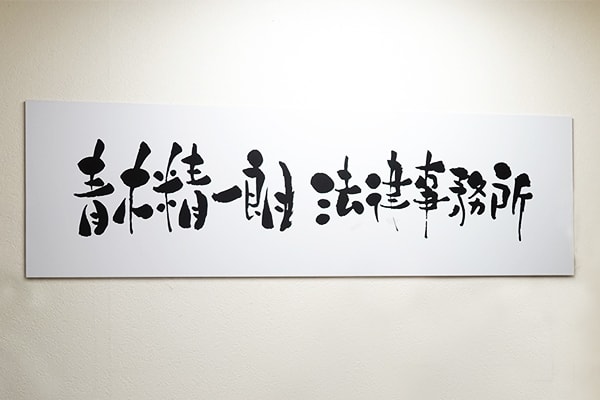 青木精一朗 法律事務所